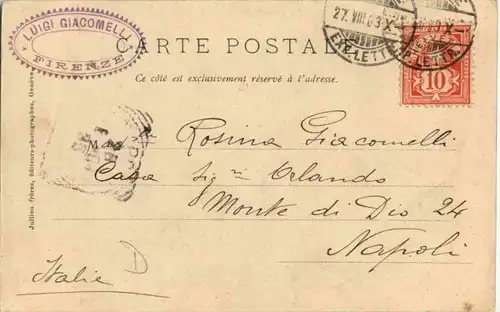 LUIGI GIACOMELLI
FIRENZE
CARTE POSTALE
Ce côté est exclusivement réservé à l'adresse.
27. VIII. 03. X
EXP. LETTR.
EXP. LETTR.
10
M Rosina Giacomelli
Casa Sig.ri Orlando
Monte di Dio 24
Napoli
Italie
D
Jullien frères, éditeurs-photographes, Genève